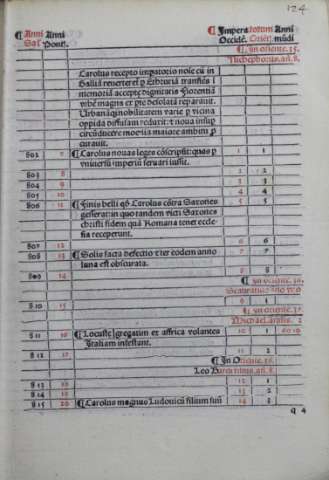 124
¶ Anni Anni
Sal⁹ Ponti.
¶ Impera totum Anni
Occidē. Oriēt. mūdi
¶ In oriente. 15.
Nicephorus. añ. 8.
Carolus recepto imperatorio noīe cū in
Galliā reuerteretᷣ ꝑ Etruriā transīēs ī
memoriā acceptę dignitatis Florentiā
vrbē magna ex pte desolatā reparauit.
Urbanāqȝ nobilitatem varie ꝑ vicina
oppida diffusam reduxit: ⁊ noua insuꝑ
circūducere moenia maiore ambitu ꝓ
curauit.
802 7 ¶ Carolus nouas leges cōscripsit: quas ꝑ 1 1
vniuersū imperiū seruari iussit.
803 8 2 2
804 9 3 3
805 10 4 4
806 11 ¶ Finis belli qḋ Carolus cōtra Saxones 5 5
gesserat: in quo tandem victi Saxones
christi fidem quā Romana tenet eccle-
sia receperunt.
807 12 6 6
808 13 ¶ Solis facta defectio ⁊ iter eodem anno 7 7
luna est obscurata.
809 14 8 8
¶ In oriente.
9 1
810 15
¶ In oriente.
Michael
811 16 ¶ Locuste gregatim ex affrica volantes 10 1 6010
Italiam infestant.
812 17 11 2
¶ In Oriente.
Leo
813 18 12 1
814 19 13 2
815 20 ¶ Carolus magnus Ludouicū filium suū 14 3
q 4